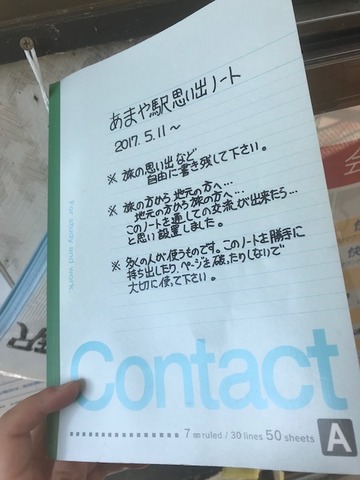 あまや駅思い出ノート
2017. 5. 11 〜
※ 旅の思い出など
自由に書き残して下さい。
※ 旅の方から 地元の方へ…
地元の方から旅の方へ…
このノートを通しての交流が出来たら…
と思い設置しました。
※ 多くの人が使うものです。このノートを勝手に
持ち出したり、ページを破ったりしないで
大切に使って下さい。
For study and work.
Contact
7 mm ruled / 30 lines 50 sheets
A